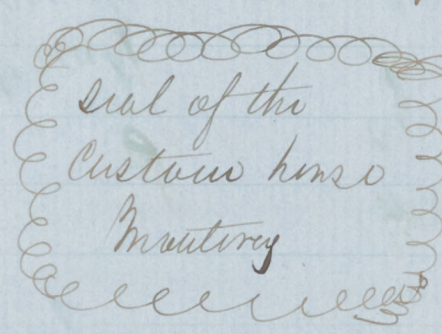 Seal of the
Custom house
Monterey